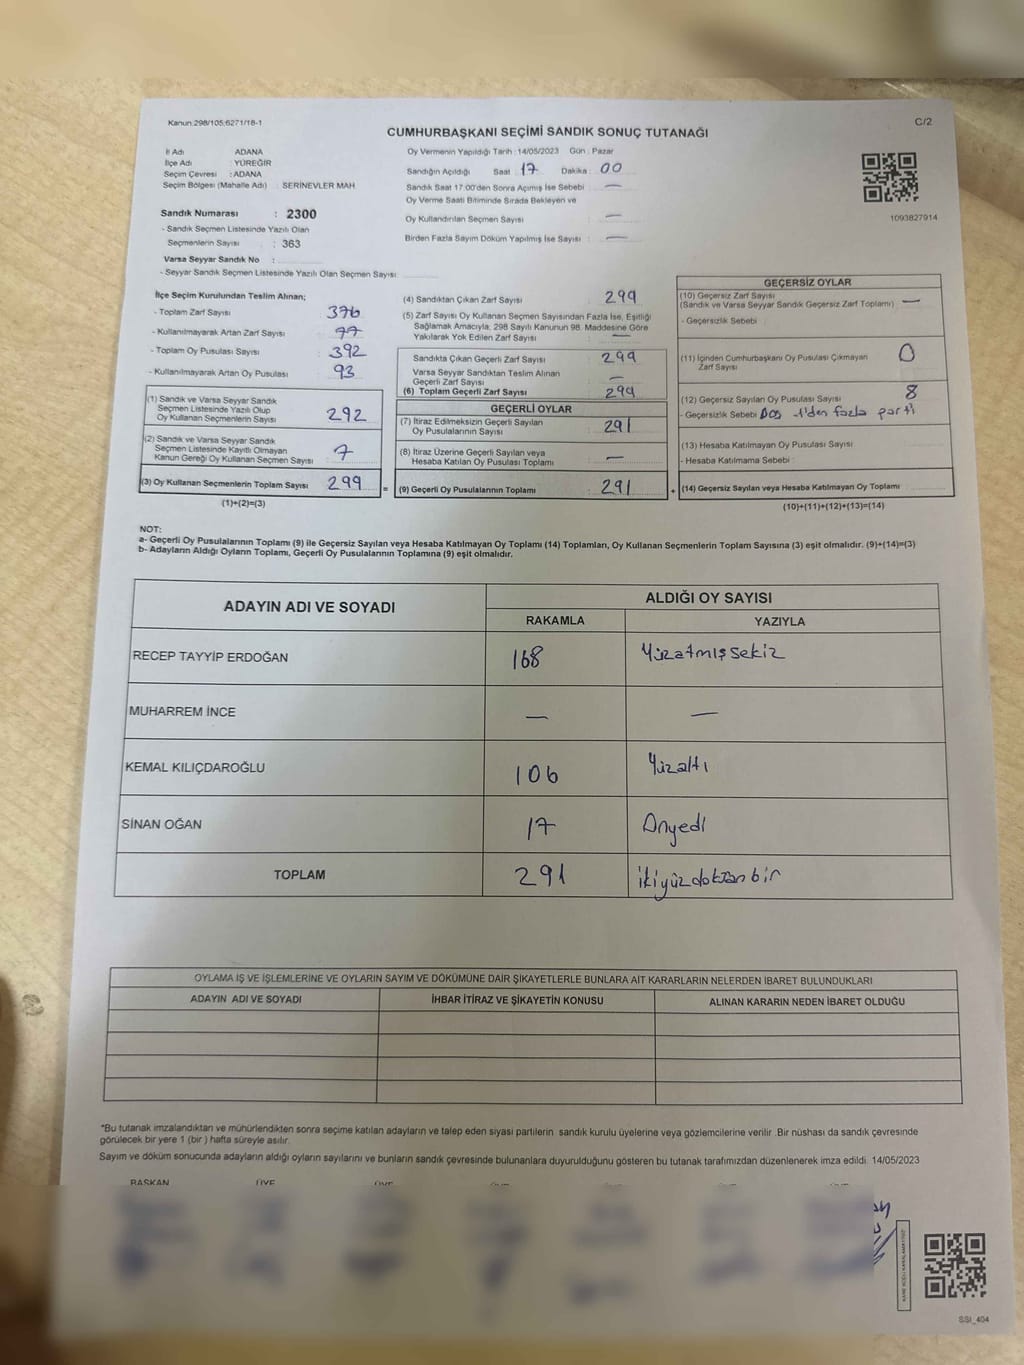 Kanun:298/105;6271/18-1
C/2
CUMHURBAŞKANI SEÇİMİ SANDIK SONUÇ TUTANAĞI
İl Adı ADANA
İlçe Adı : YÜREĞİR
Seçim Çevresi : ADANA
Seçim Bölgesi (Mahalle Adı) : SERİNEVLER MAH
Sandık Numarası : 2300
- Sandık Seçmen Listesinde Yazılı Olan
Seçmenlerin Sayısı : 363
Varsa Seyyar Sandık No :
- Seyyar Sandık Seçmen Listesinde Yazılı Olan Seçmen Sayısı
Oy Vermenin Yapıldığı Tarih :14/05/2023 Gün : Pazar
Sandığın Açıldığı Saat : 17 Dakika : 00
Sandık Saat 17:00'den Sonra Açımış İse Sebebi : —
Oy Verme Saati Bitiminde Sırada Bekleyen ve
Oy Kullandırılan Seçmen Sayısı : —
Birden Fazla Sayım Döküm Yapılmış İse Sayısı : —
1093827914
İlçe Seçim Kurulundan Teslim Alınan;
- Toplam Zarf Sayısı : 376
- Kullanılmayarak Artan Zarf Sayısı : 77
- Toplam Oy Pusulası Sayısı : 392
- Kullanılmayarak Artan Oy Pusulası : 93
(1) Sandık ve Varsa Seyyar Sandık
Seçmen Listesinde Yazılı Olup
Oy Kullanan Seçmenlerin Sayısı : 292
(2) Sandık ve Varsa Seyyar Sandık
Seçmen Listesinde Kayıtlı Olmayan
Kanun Gereği Oy Kullanan Seçmen Sayısı : 7
(3) Oy Kullanan Seçmenlerin Toplam Sayısı : 299
(1)+(2)=(3)
=
(4) Sandıktan Çıkan Zarf Sayısı : 299
(5) Zarf Sayısı Oy Kullanan Seçmen Sayısından Fazla İse, Eşitliği
Sağlamak Amacıyla; 298 Sayılı Kanunun 98. Maddesine Göre
Yakılarak Yok Edilen Zarf Sayısı : —
Sandıkta Çıkan Geçerli Zarf Sayısı : 299
Varsa Seyyar Sandıktan Teslim Alınan
Geçerli Zarf Sayısı : —
(6) Toplam Geçerli Zarf Sayısı : 299
GEÇERLİ OYLAR
(7) İtiraz Edilmeksizin Geçerli Sayılan
Oy Pusulalarının Sayısı : 291
(8) İtiraz Üzerine Geçerli Sayılan veya
Hesaba Katılan Oy Pusulası Toplamı : —
(9) Geçerli Oy Pusulalarının Toplamı : 291
+
GEÇERSİZ OYLAR
(10) Geçersiz Zarf Sayısı
(Sandık ve Varsa Seyyar Sandık Geçersiz Zarf Toplamı) : —
- Geçersizlik Sebebi :
(11) İçinden Cumhurbaşkanı Oy Pusulası Çıkmayan
Zarf Sayısı 0
(12) Geçersiz Sayılan Oy Pusulası Sayısı : 8
- Geçersizlik Sebebi 1'den fazla parti
(13) Hesaba Katılmayan Oy Pusulası Sayısı :
- Hesaba Katılmama Sebebi :
(14) Geçersiz Sayılan veya Hesaba Katılmayan Oy Toplamı :
(10)+(11)+(12)+(13)=(14)
NOT:
a- Geçerli Oy Pusulalarının Toplamı (9) ile Geçersiz Sayılan veya Hesaba Katılmayan Oy Toplamı (14) Toplamları, Oy Kullanan Seçmenlerin Toplam Sayısına (3) eşit olmalıdır. (9)+(14)=(3)
b- Adayların Aldığı Oyların Toplamı, Geçerli Oy Pusulalarının Toplamına (9) eşit olmalıdır.
ADAYIN ADI VE SOYADI
ALDIĞI OY SAYISI
RAKAMLA YAZIYLA
RECEP TAYYİP ERDOĞAN 168 Yüzatmışsekiz
MUHARREM İNCE — —
KEMAL KILIÇDAROĞLU 106 Yüzaltı
SİNAN OĞAN 17 Onyedi
TOPLAM 291 ikiyüzdoksanbir
OYLAMA İŞ VE İŞLEMLERİNE VE OYLARIN SAYIM VE DÖKÜMÜNE DAİR ŞİKAYETLERLE BUNLARA AİT KARARLARIN NELERDEN İBARET BULUNDUKLARI
ADAYIN ADI VE SOYADI İHBAR İTİRAZ VE ŞİKAYETİN KONUSU ALINAN KARARIN NEDEN İBARET OLDUĞU
*Bu tutanak imzalandıktan ve mühürlendikten sonra seçime katılan adayların ve talep eden siyasi partilerin sandık kurulu üyelerine veya gözlemcilerine verilir. Bir nüshası da sandık çevresinde
görülecek bir yere 1 (bir ) hafta süreyle asılır.
Sayım ve döküm sonucunda adayların aldığı oyların sayılarını ve bunların sandık çevresinde bulunanlara duyurulduğunu gösteren bu tutanak tarafımızdan düzenlenerek imza edildi. 14/05/2023
BAŞKAN ÜYE ÜYE
SSI_404